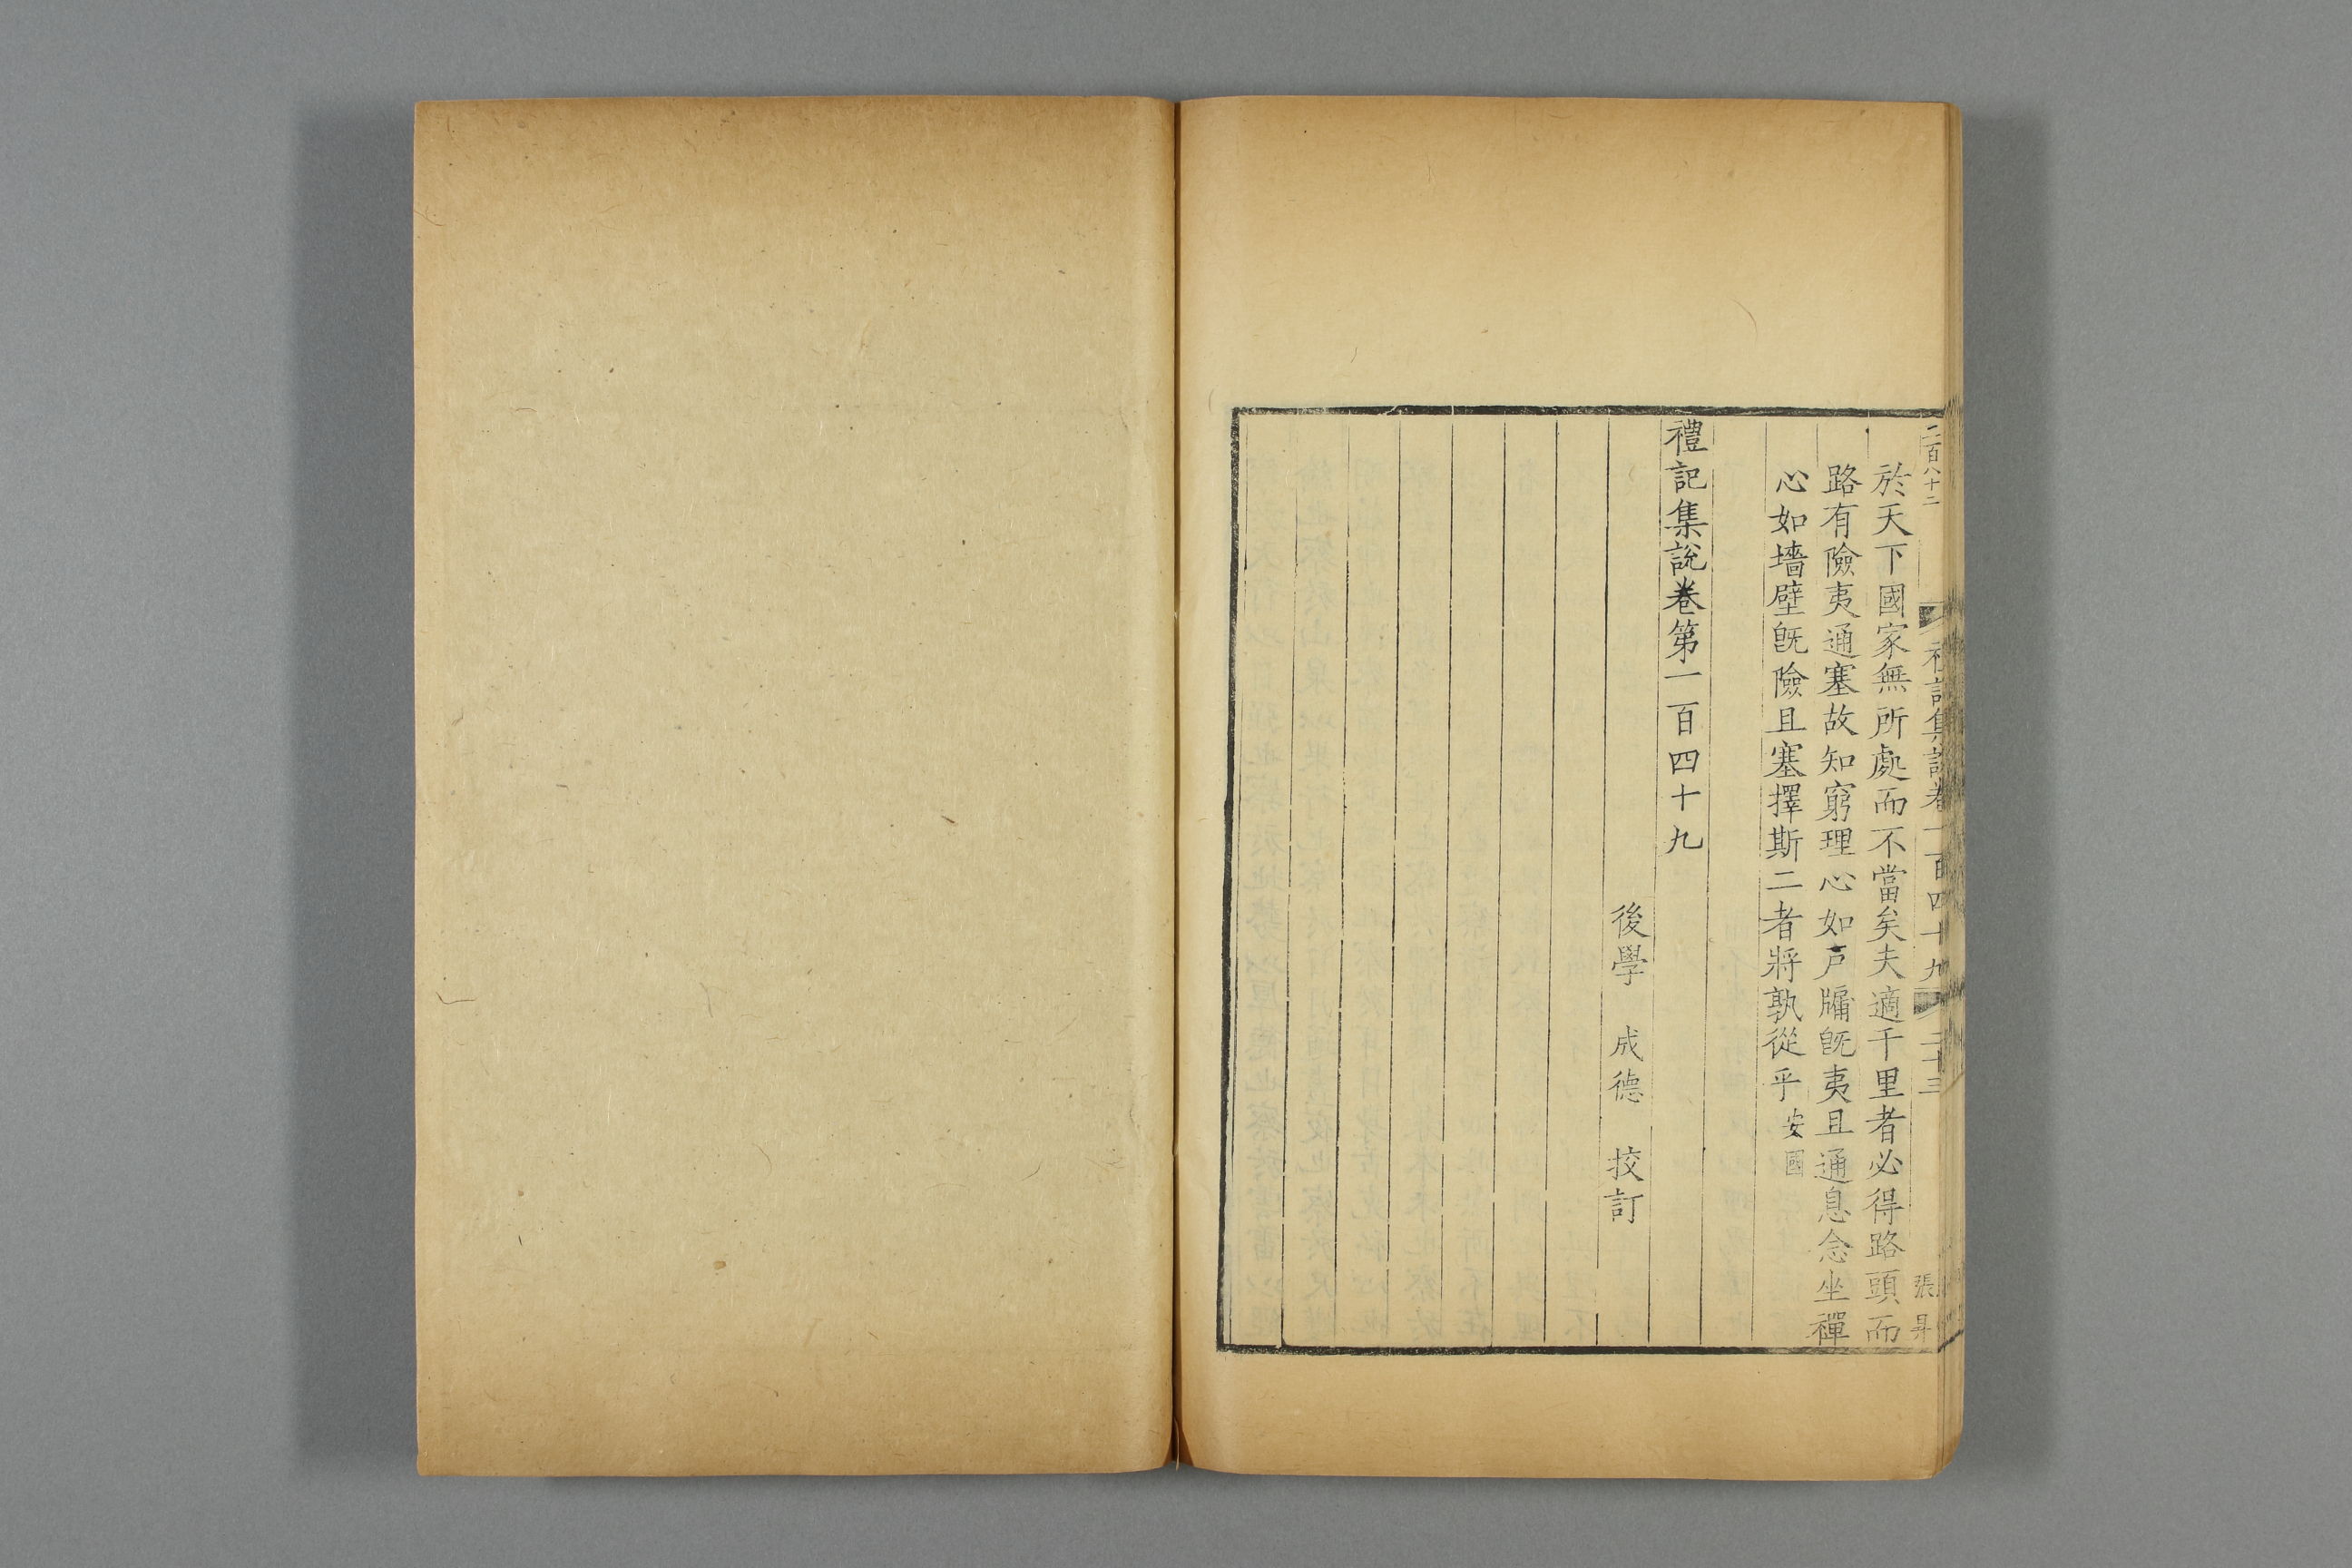 二百八十二
禮記集說卷一百四十九
二十三
張昇
於天下國家無所處而不當矣夫適千里者必得路頭而
路有險夷通塞故知窮理心如戸牖旣夷且通息念坐禪
心如墻壁旣險且塞擇斯二者將孰從乎安國
禮記集說卷第一百四十九
後學 成德 挍訂